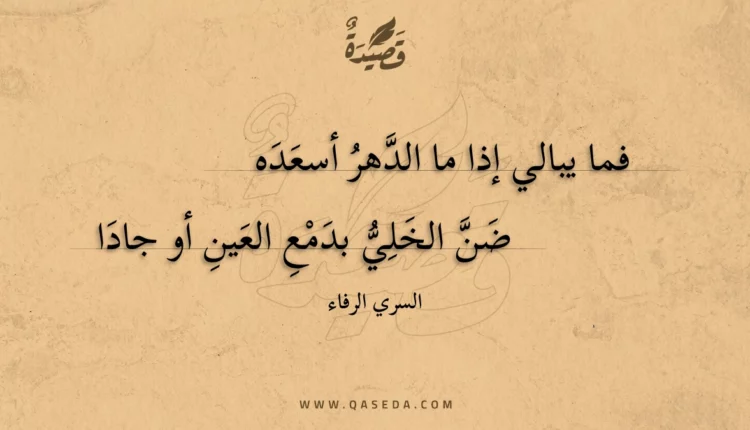 قَصِيدَةٌ
فما يبالي إذا ما الدَّهرُ أسعَدَه
ضَنَّ الخَلِيُّ بدَمْعِ العَينِ أو جادَا
السري الرفاء
WWW.QASEDA.COM